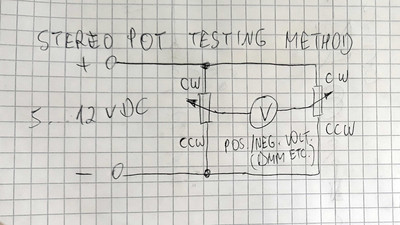 STEREO POT TESTING METHOD
+
CW
CW
5...12 V DC
V
CCW
CCW
POS./NEG. VOLT.
(DMM ETC.)
-